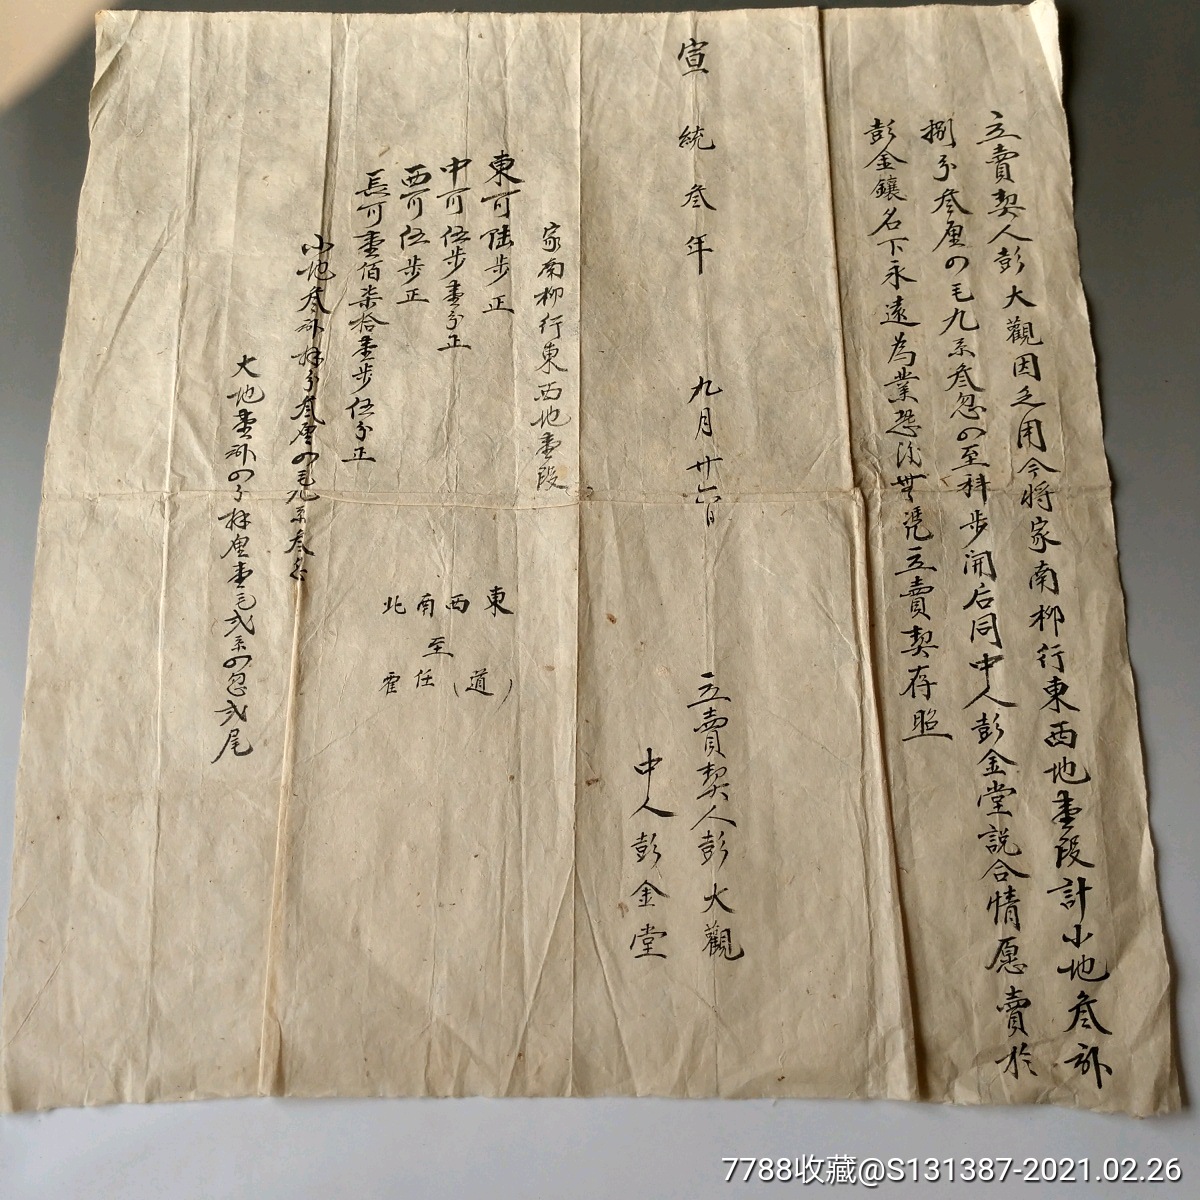 立賣契人彭大觀因乏用今將家南柳行東西地壹段計小地叁畝
捌分叁厘四毛九系叁忽四至科步開后同中人彭金堂説合情愿賣於
彭金鑲名下永遠為業恐後無凴立賣契存照
宣統叁年 九月廿六日 立賣契人彭大觀
中人彭金堂
家南柳行東西地壹段
東可陆步正
中可伍步壹分正
西可伍步正
長可壹佰柒拾壹步伍分正
東西南北
至
(道)任霍
小地叁畝捌分叁厘四毛九系叁忽
大地壹畝四分捌厘壹毛弍系四忽弍尾
7788收藏@S131387-2021.02.26